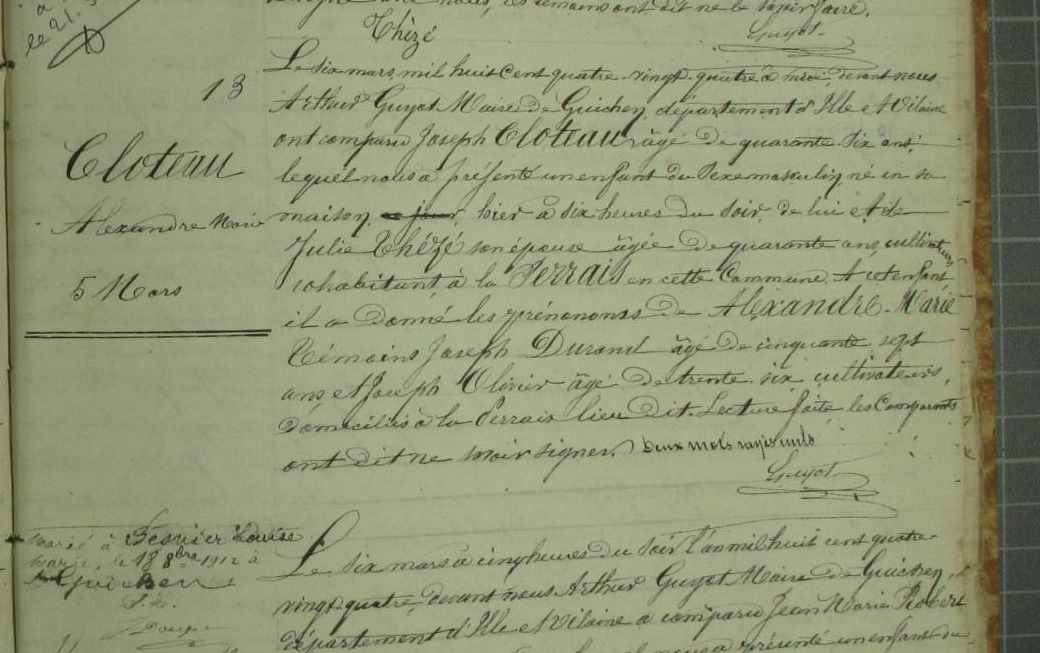 le 21.
ne le savoir faire.
Thézé
Guyot
13
Cloteau
Alexandre Marie
5 Mars
Le six mars mil huit cent quatre-vingt-quatre à midi devant nous
Arthur Guyot Maire de Guichen, département d'Ille et Vilaine
ont comparu Joseph Cloteau âgé de quarante six ans
lequel nous a présenté un enfant du sexe masculin, né en sa
maison, ce jour hier à six heures du soir, de lui et de
Julie Thézé son épouse âgée de quarante ans, cultivateurs
cohabitant à la Perrais en cette Commune. A cet enfant
il a donné les prénoms de Alexandre-Marie
Témoins Joseph Durand âgé de cinquante sept
ans et Joseph Olivier âgé de trente six cultivateurs,
domiciliés à la Perrais lieu dit. Lecture faite les Comparants
ont dit ne savoir signer. deux mots rayés nuls
Guyot
Marié à Besnier Louise
le 18 8bre 1912 à
Guichen
Le six mars à cinq heures du soir l'an mil huit cent quatre
vingt quatre, devant nous Arthur Guyot Maire de Guichen,
département d'Ille et Vilaine a comparu Jean Marie Robert
nous a présenté un enfant du